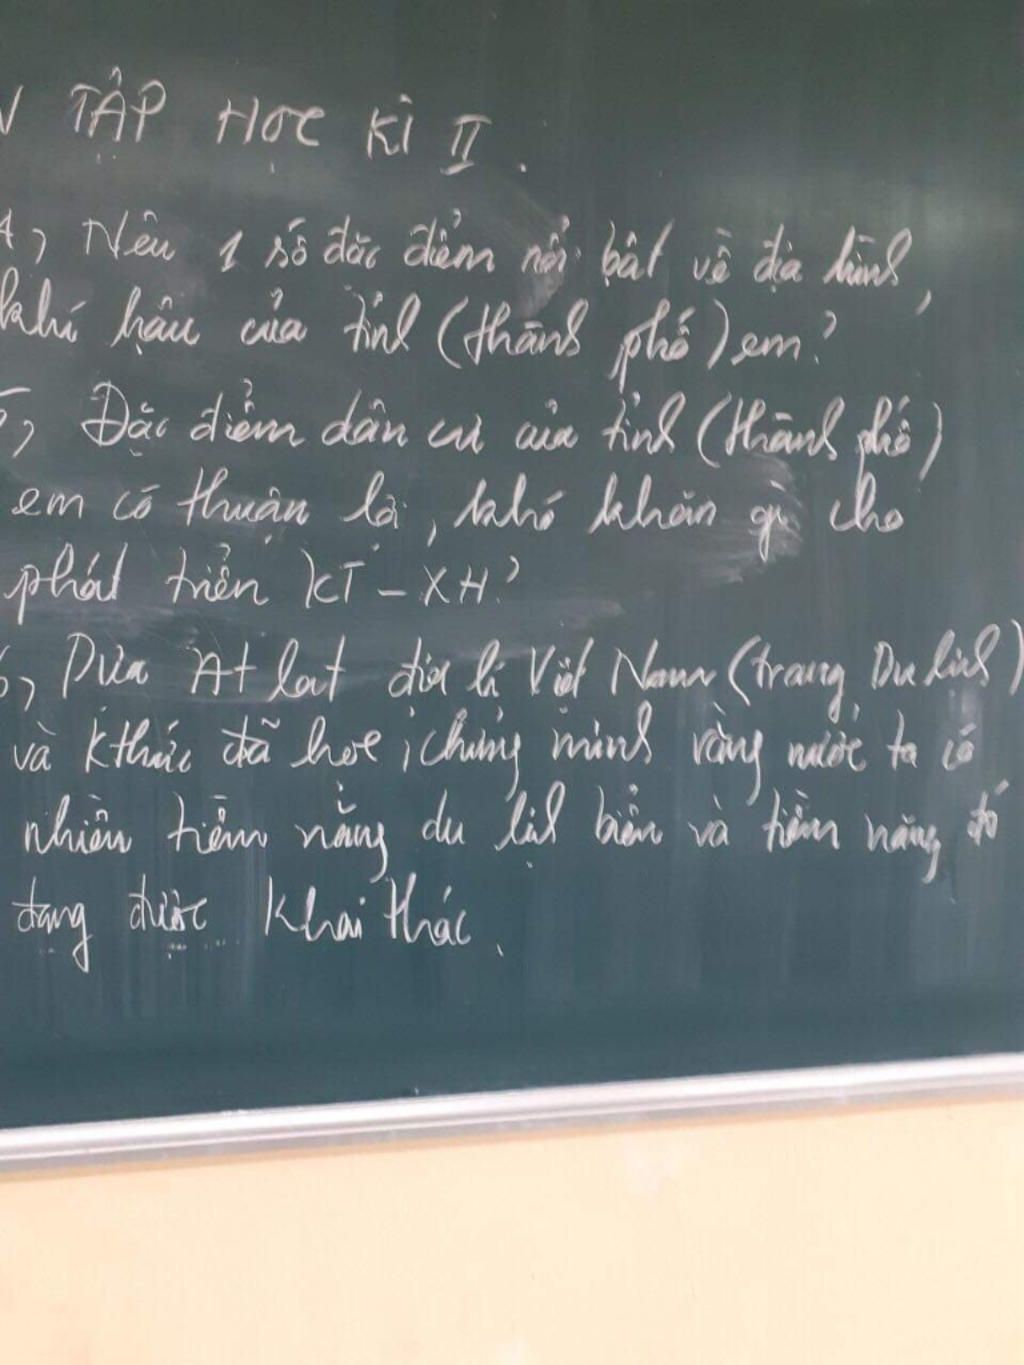 TẬP HỌC KÌ II.
4, Nêu 1 số đặc điểm nổi bật về địa hình,
khí hậu của tỉnh (thành phố) em?
5, Đặc điểm dân cư của tỉnh (thành phố)
em có thuận lợi, khó khăn gì cho
phát triển KT - XH?
6, Dựa At lat địa lí Việt Nam (trang Du lịch)
và kthức đã học, chứng minh rằng nước ta có
nhiều tiềm năng du lịch biển và tiềm năng đó
đang được khai thác.